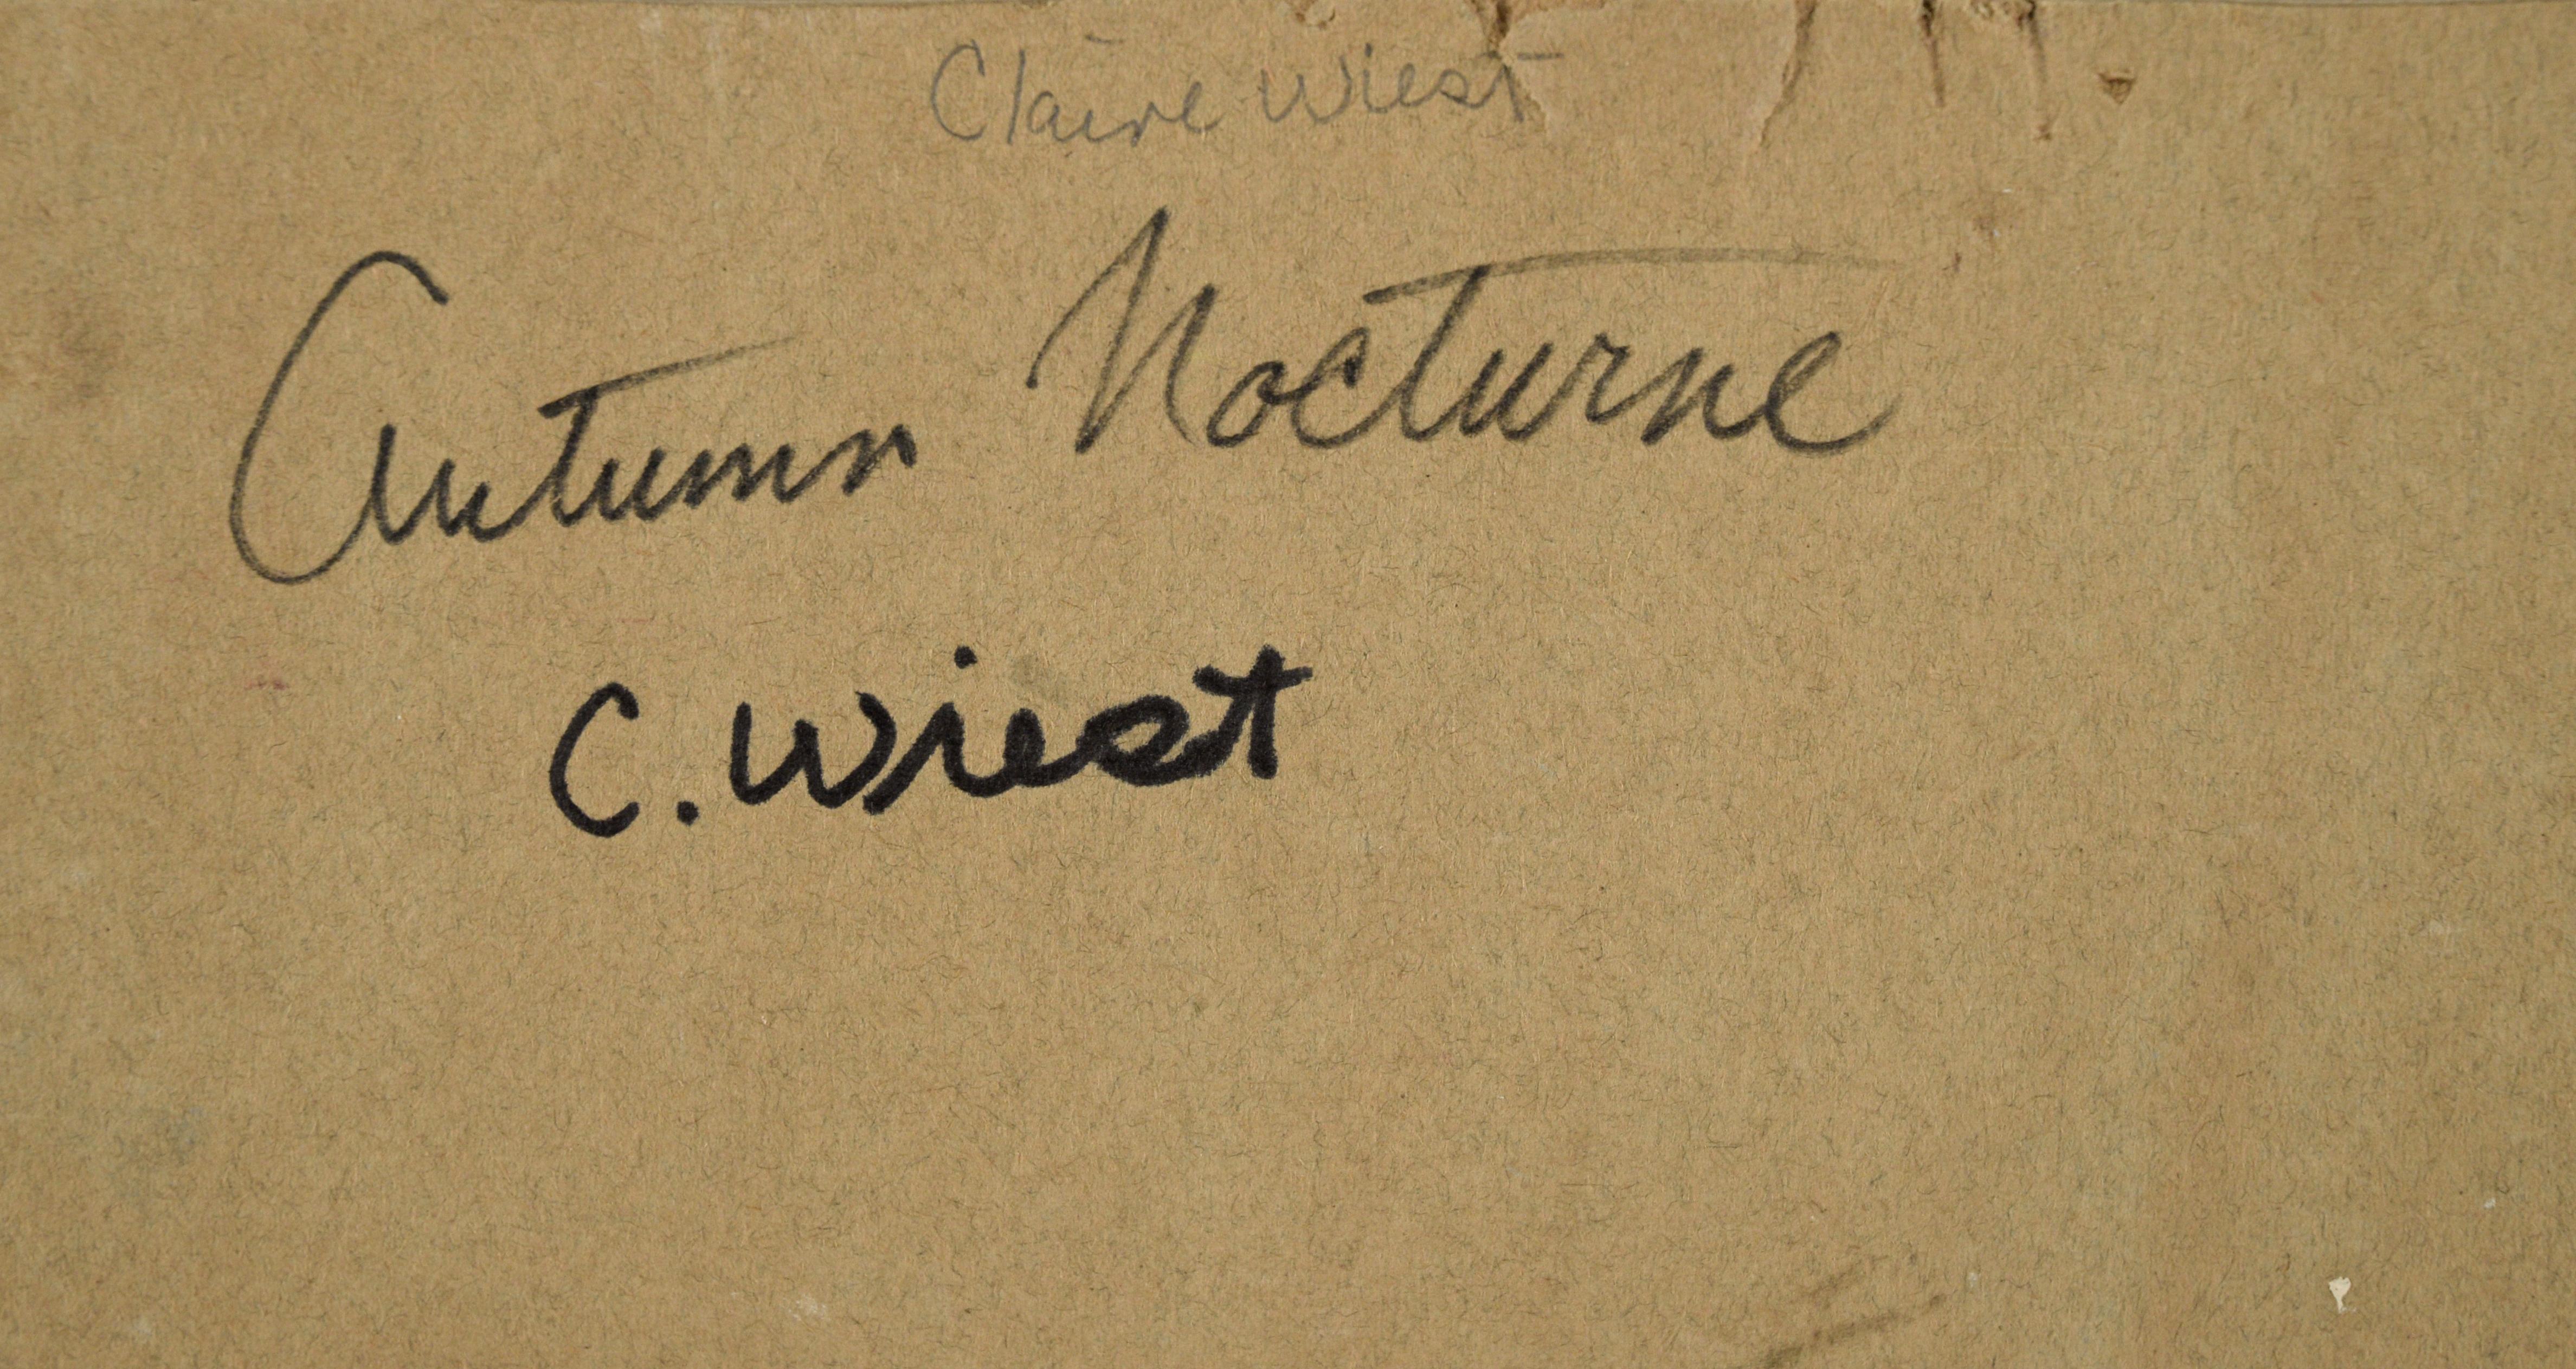 Claire Wiest
Autumn Nocturne
C. Wiest